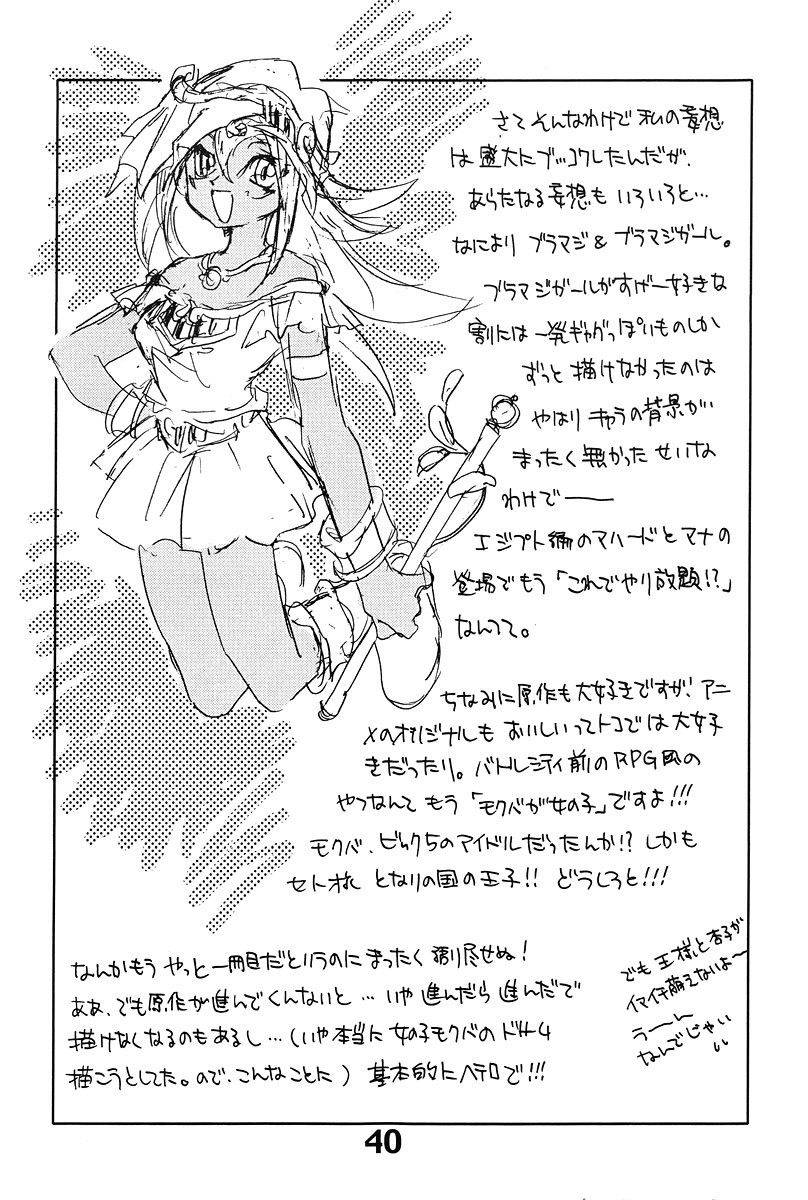 さてそんなわけで私の妄想
は盛大にブッコワしたんだが、
あらたなる妄想もいろいろと…
なにより ブラマジ & ブラマジガール。
ブラマジガールがすげー好きな
割には一発ギャグっぽいものしか
ずっと描けなかったのは
やはりキャラの背景が
まったく無かったせいな
わけで――
エジプト編のマハードとマナの
登場でもう「これでやり放題!?」
なんてて。
ちなみに原作も大好きですが、アニ
メのオリジナルも おいしいってトコでは大好
きだったり。バトルシティ前のRPG風の
やつなんて もう「モクバが女の子」ですよ!!!
モクバ、ビック5のアイドルだったんか!? しかも
セト様 となりの国の王子!! どうしろと!!!
なんかもう やっと一冊目だというのに まったく 語り尽せぬ!
ああ、でも原作が進んでくんないと … いや 進んだら 進んだで
描けなくなるのもあるし…(いや本当に 女の子モクバの
描こうとしてた。ので、こんなことに) 基本的にヘテロで!!!
でも 王様と杏子が
イマイチ萌えないよ〜
うーん
なんでじゃい
40